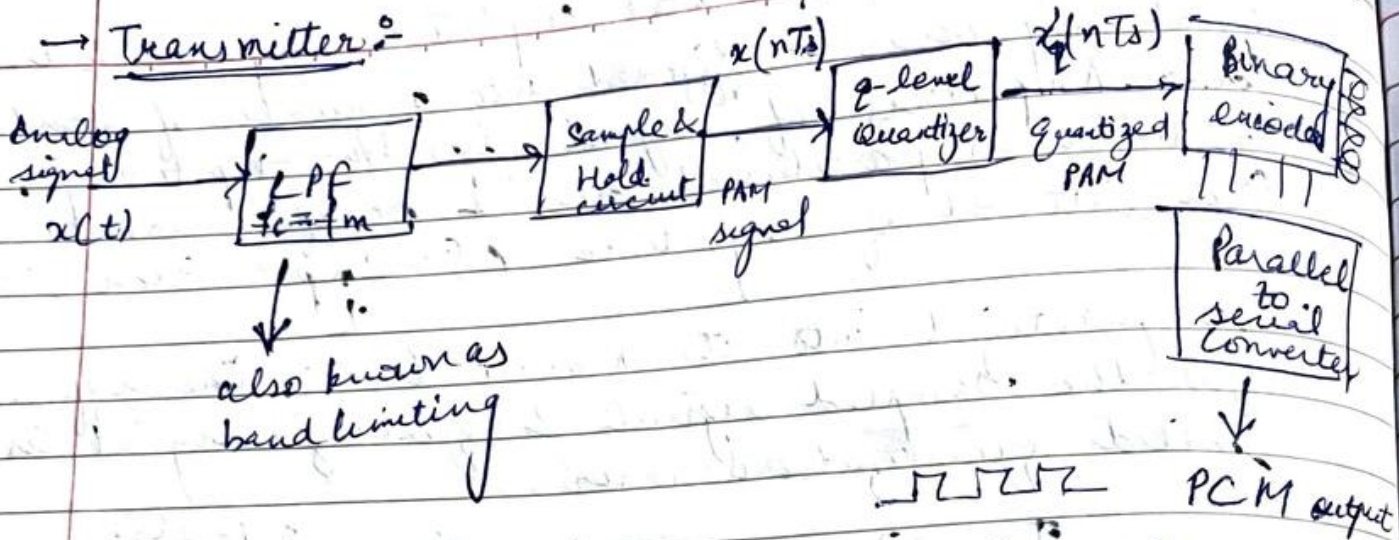 → Transmitter :-
Analog
signal
x(t)
LPF
fc = fm
Sample &
Hold
circuit
x(nTs)
PAM
signal
q-level
Quantizer
xq(nTs)
Quantized
PAM
Binary
encoder
Parallel
to
serial
Converter
PCM output
also known as
band limiting